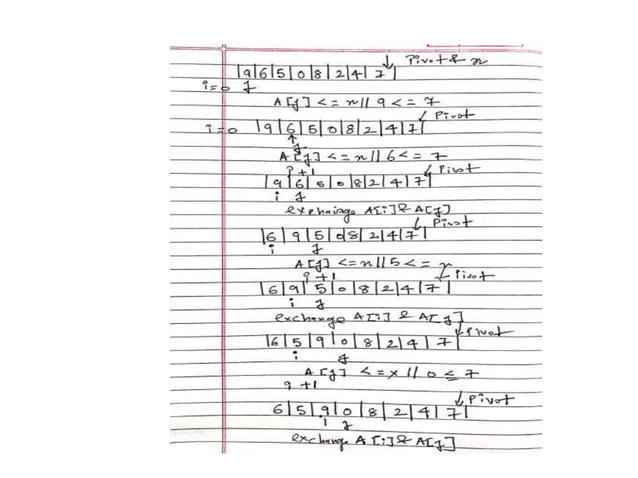 Pivot & x
|9|6|5|0|8|2|4|7|
i=0 j
A[j] <= x // 9 <= 7
Pivot
i=0 |9|6|5|0|8|2|4|7|
j
A[j] <= x // 6 <= 7
i+1 Pivot
|9|6|0|0|8|2|4|7|
i j
exchainge A[i] & A[j]
Pivot
|6|9|5|0|8|2|4|7|
i j
A[j] <= x // 5 <= x
i+1 Pivot
|6|9|5|0|8|2|4|7|
i j
exchange A[i] & A[j]
Pivot
|6|5|9|0|8|2|4|7|
i j
A[j] <= x // 0 ≤ 7
i+1
Pivot
6|5|9|0|8|2|4|7|
i j
exchange A[i] & A[j]